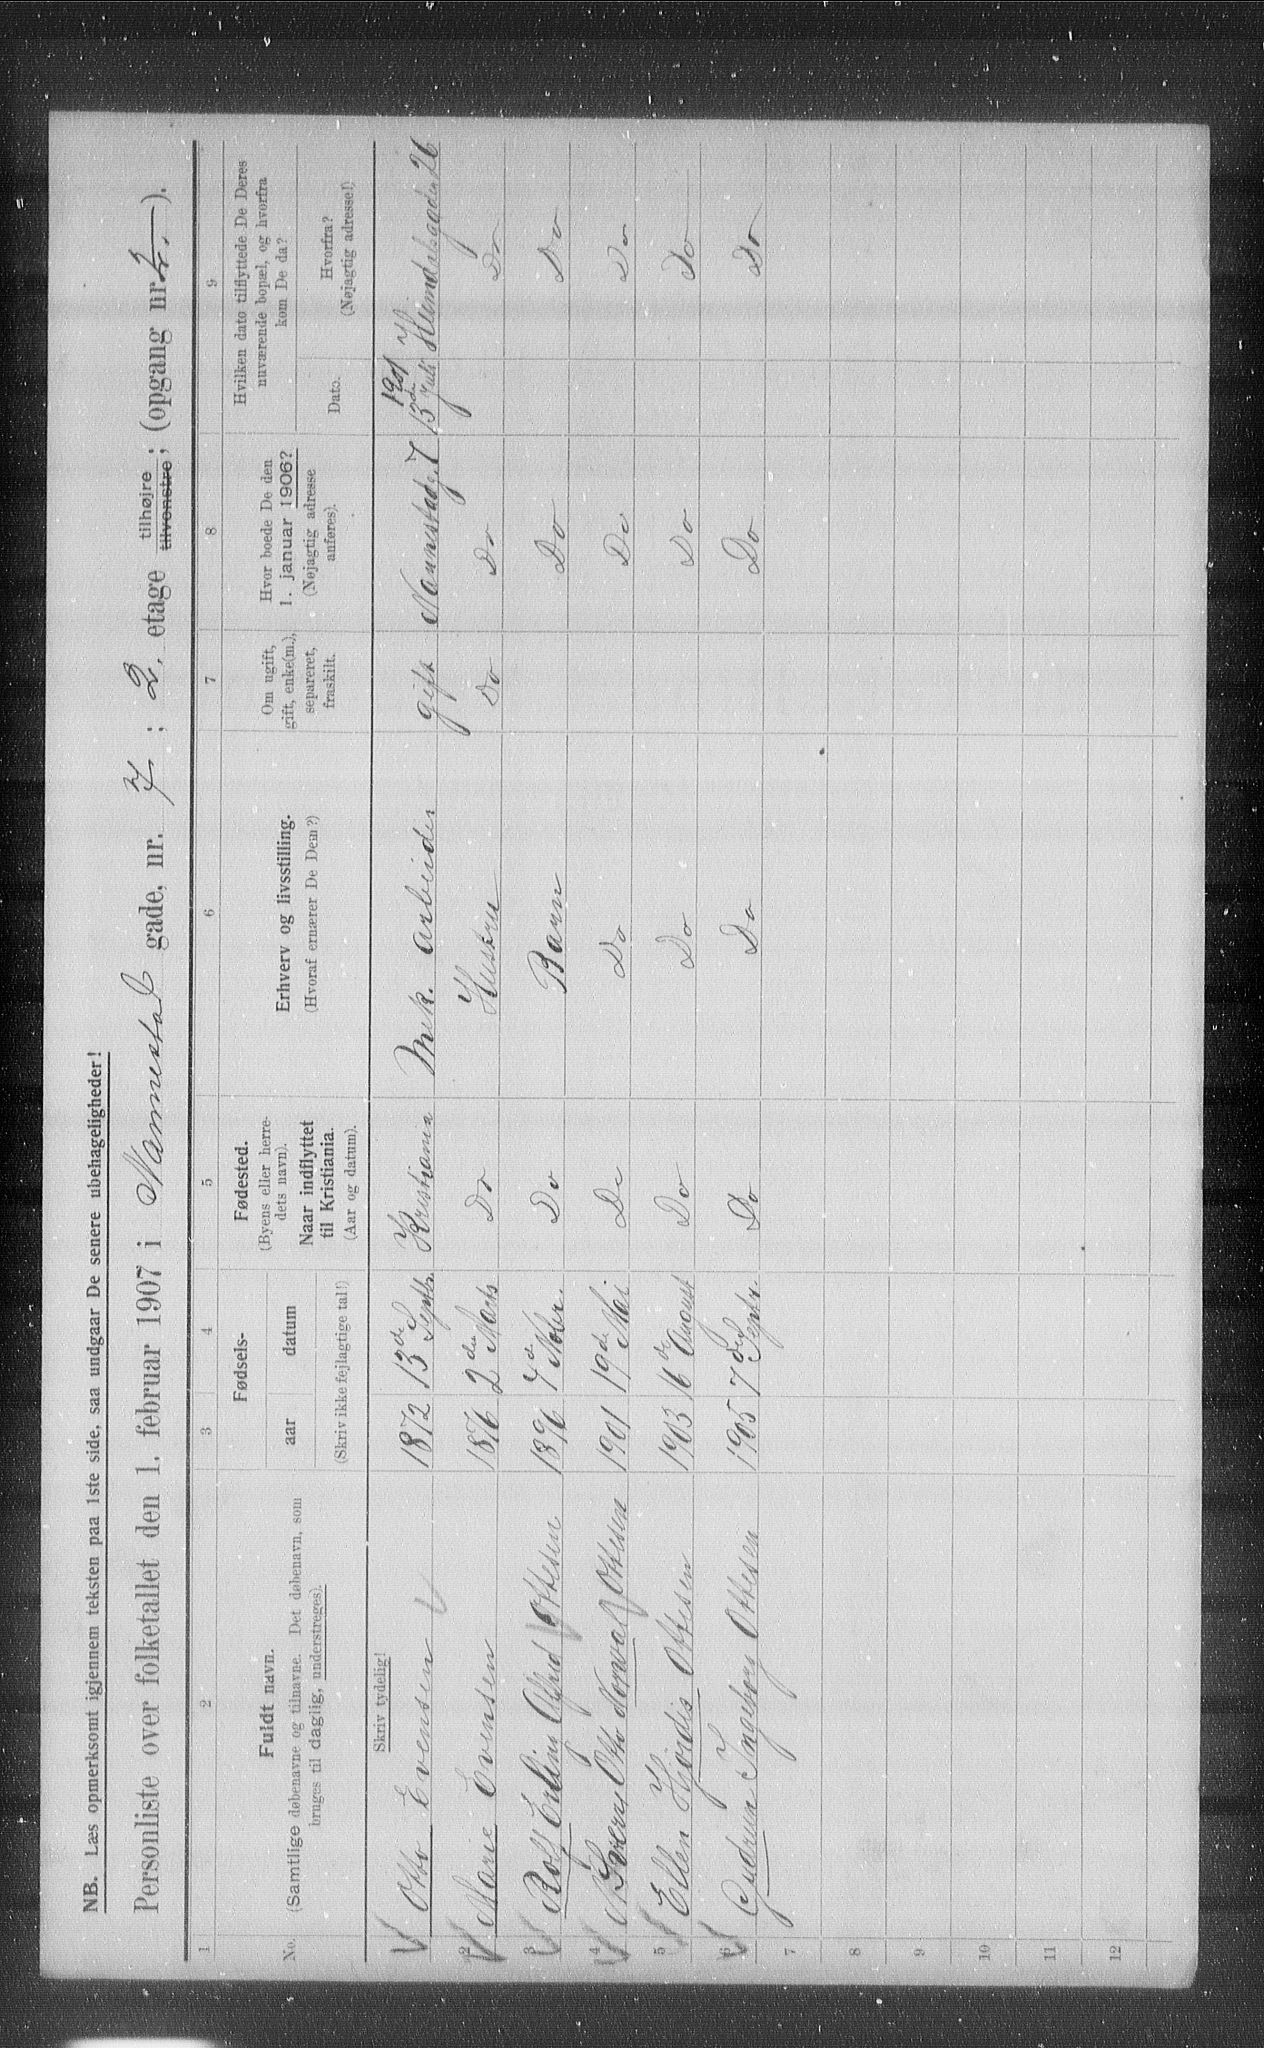 NB. Læs opmerksomt igjennem teksten paa 1ste side, saa undgaar De senere ubehageligheder!
Personliste over folketallet den 1. februar 1907 i Nannestad gade, nr. 7; 2. etage tilhøjre tilvenstre; (opgang nr. 2.).
1 2 3 4 5 6 7 8 9
No.
Fuldt navn.
(Samtlige døbenavne og tilnavne. Det døbenavn, som
bruges til daglig, understreges).
Fødsels-
aar datum
(Skriv ikke fejlagtige tal!)
Fødested.
(Byens eller herre-
dets navn).
Naar indflyttet
til Kristiania.
(Aar og datum).
Erhverv og livsstilling.
(Hvoraf ernærer De Dem?)
Om ugift,
gift, enke(m.),
separeret,
fraskilt.
Hvor boede De den
1. januar 1906?
(Nøjagtig adresse
anføres).
Hvilken dato tilflyttede De Deres
nuværende bopæl, og hvorfra
kom De da?
Dato.
Hvorfra?
(Nøjagtig adresse!)
Skriv tydelig!
Otto Evensen 1872 13de Septbr. Kristiania Mek. Arbeider gift Nannestadg. 7 1901 13de Juli Heimdalsgaden 26
2 Marie Evensen 1876 2den Marts Do Hustru Do Do Do
3 Rolf Erling Alfred Ottesen 1896 7de Novbr. Do Barn Do Do
4 Otto Norval Ottesen 1901 19de Mai Do Do Do Do
5 Ellen Hjørdis Ottesen 1903 16de August Do Do Do Do
6 Gudrun Ingeborg Ottesen 1905 7de Septr. Do Do Do Do
7
8
9
10
11
12